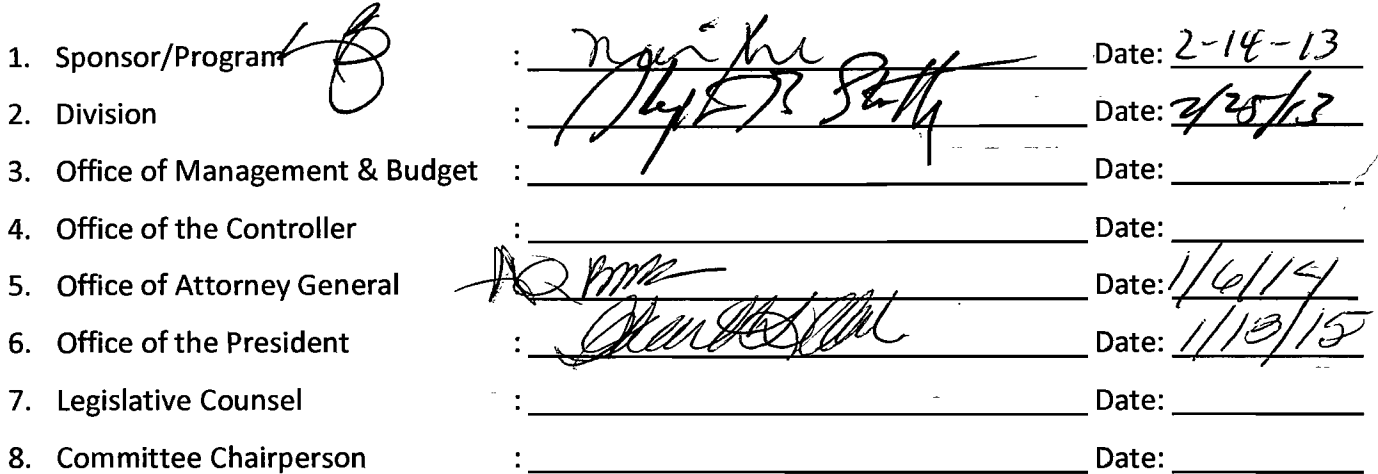 1. Sponsor/Program : Date: 2-14-13
2. Division : Date: 2/25/13
3. Office of Management & Budget : Date:
4. Office of the Controller : Date:
5. Office of Attorney General Date: 1/6/14
6. Office of the President : Date: 1/13/15
7. Legislative Counsel : Date:
8. Committee Chairperson : Date: